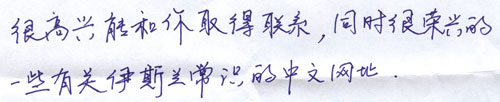 很高兴能和你取得联系,同时很荣兴的
一些有关伊斯兰常识的中文网址.